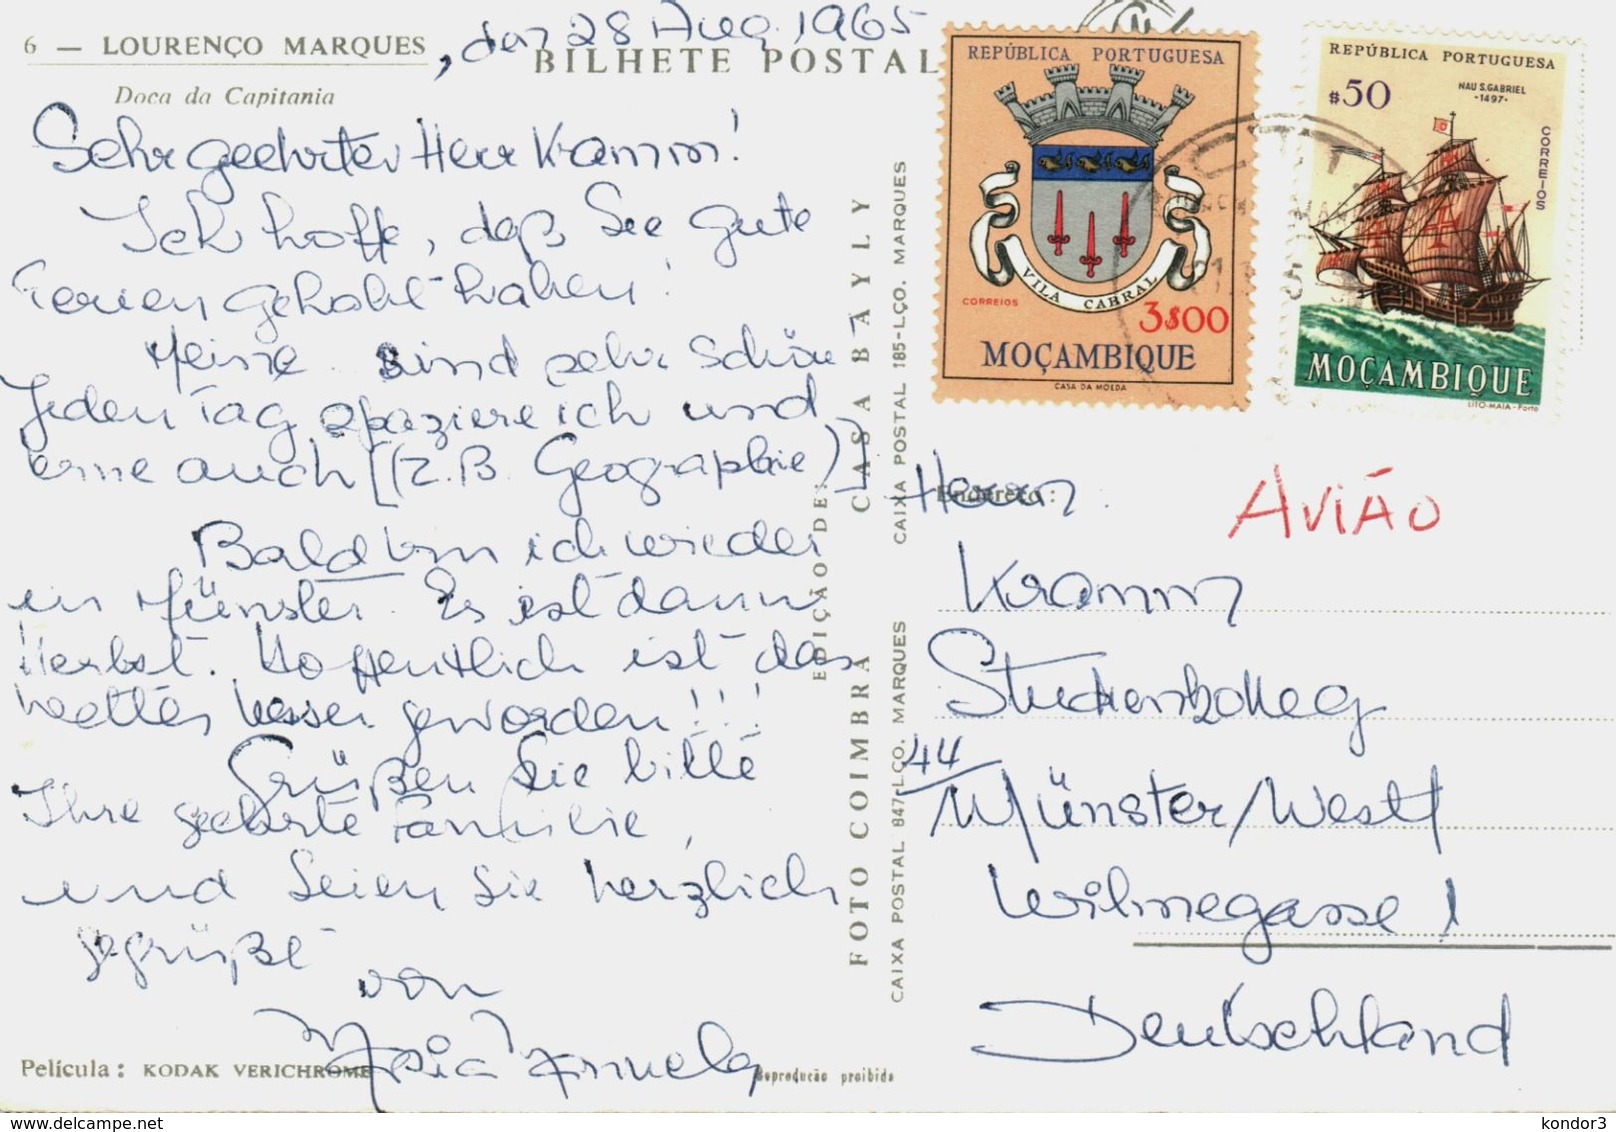 6 — LOURENÇO MARQUES, den 28 Aug. 1965
BILHETE POSTAL
Doca da Capitania
Sehr geehrter Herr Kramm!
Ich hoffe, daß Sie gute
Ferien gehabt haben!
Meine sind sehr schön
Jeden Tag spaziere ich und
lerne auch [(z.B. Geographie)]
Bald bin ich wieder
in Münster. Es ist dann
Herbst. Hoffentlich ist das
Wetter besser geworden!!!
Grüßen Sie bitte
Ihre geehrte Familie,
und seien Sie herzlich
gegrüßt
von
Maria Manuela
Película: KODAK VERICHROME
Reprodução proibida
EDIÇÃO DE:
FOTO COIMBRA CASA BAYLY
CAIXA POSTAL 847-LÇO. MARQUES CAIXA POSTAL 185-LÇO. MARQUES
REPÚBLICA PORTUGUESA
VILA CABRAL
CORREIOS
3$00
MOÇAMBIQUE
CASA DA MOEDA
REPÚBLICA PORTUGUESA
$50
NAU S.GABRIEL
-1497-
CORREIOS
MOÇAMBIQUE
LITO-MAIA-Porto
Endereço:
Herrn
AVIÃO
Kramm
Studienkolleg
44
Münster/Westf
Wilmergasse 1
Deutschland
kondor3
www.delcampe.net